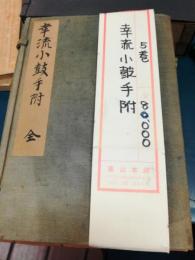 幸流小鼓手附 全
5巻
80,000
幸流小鼓手附